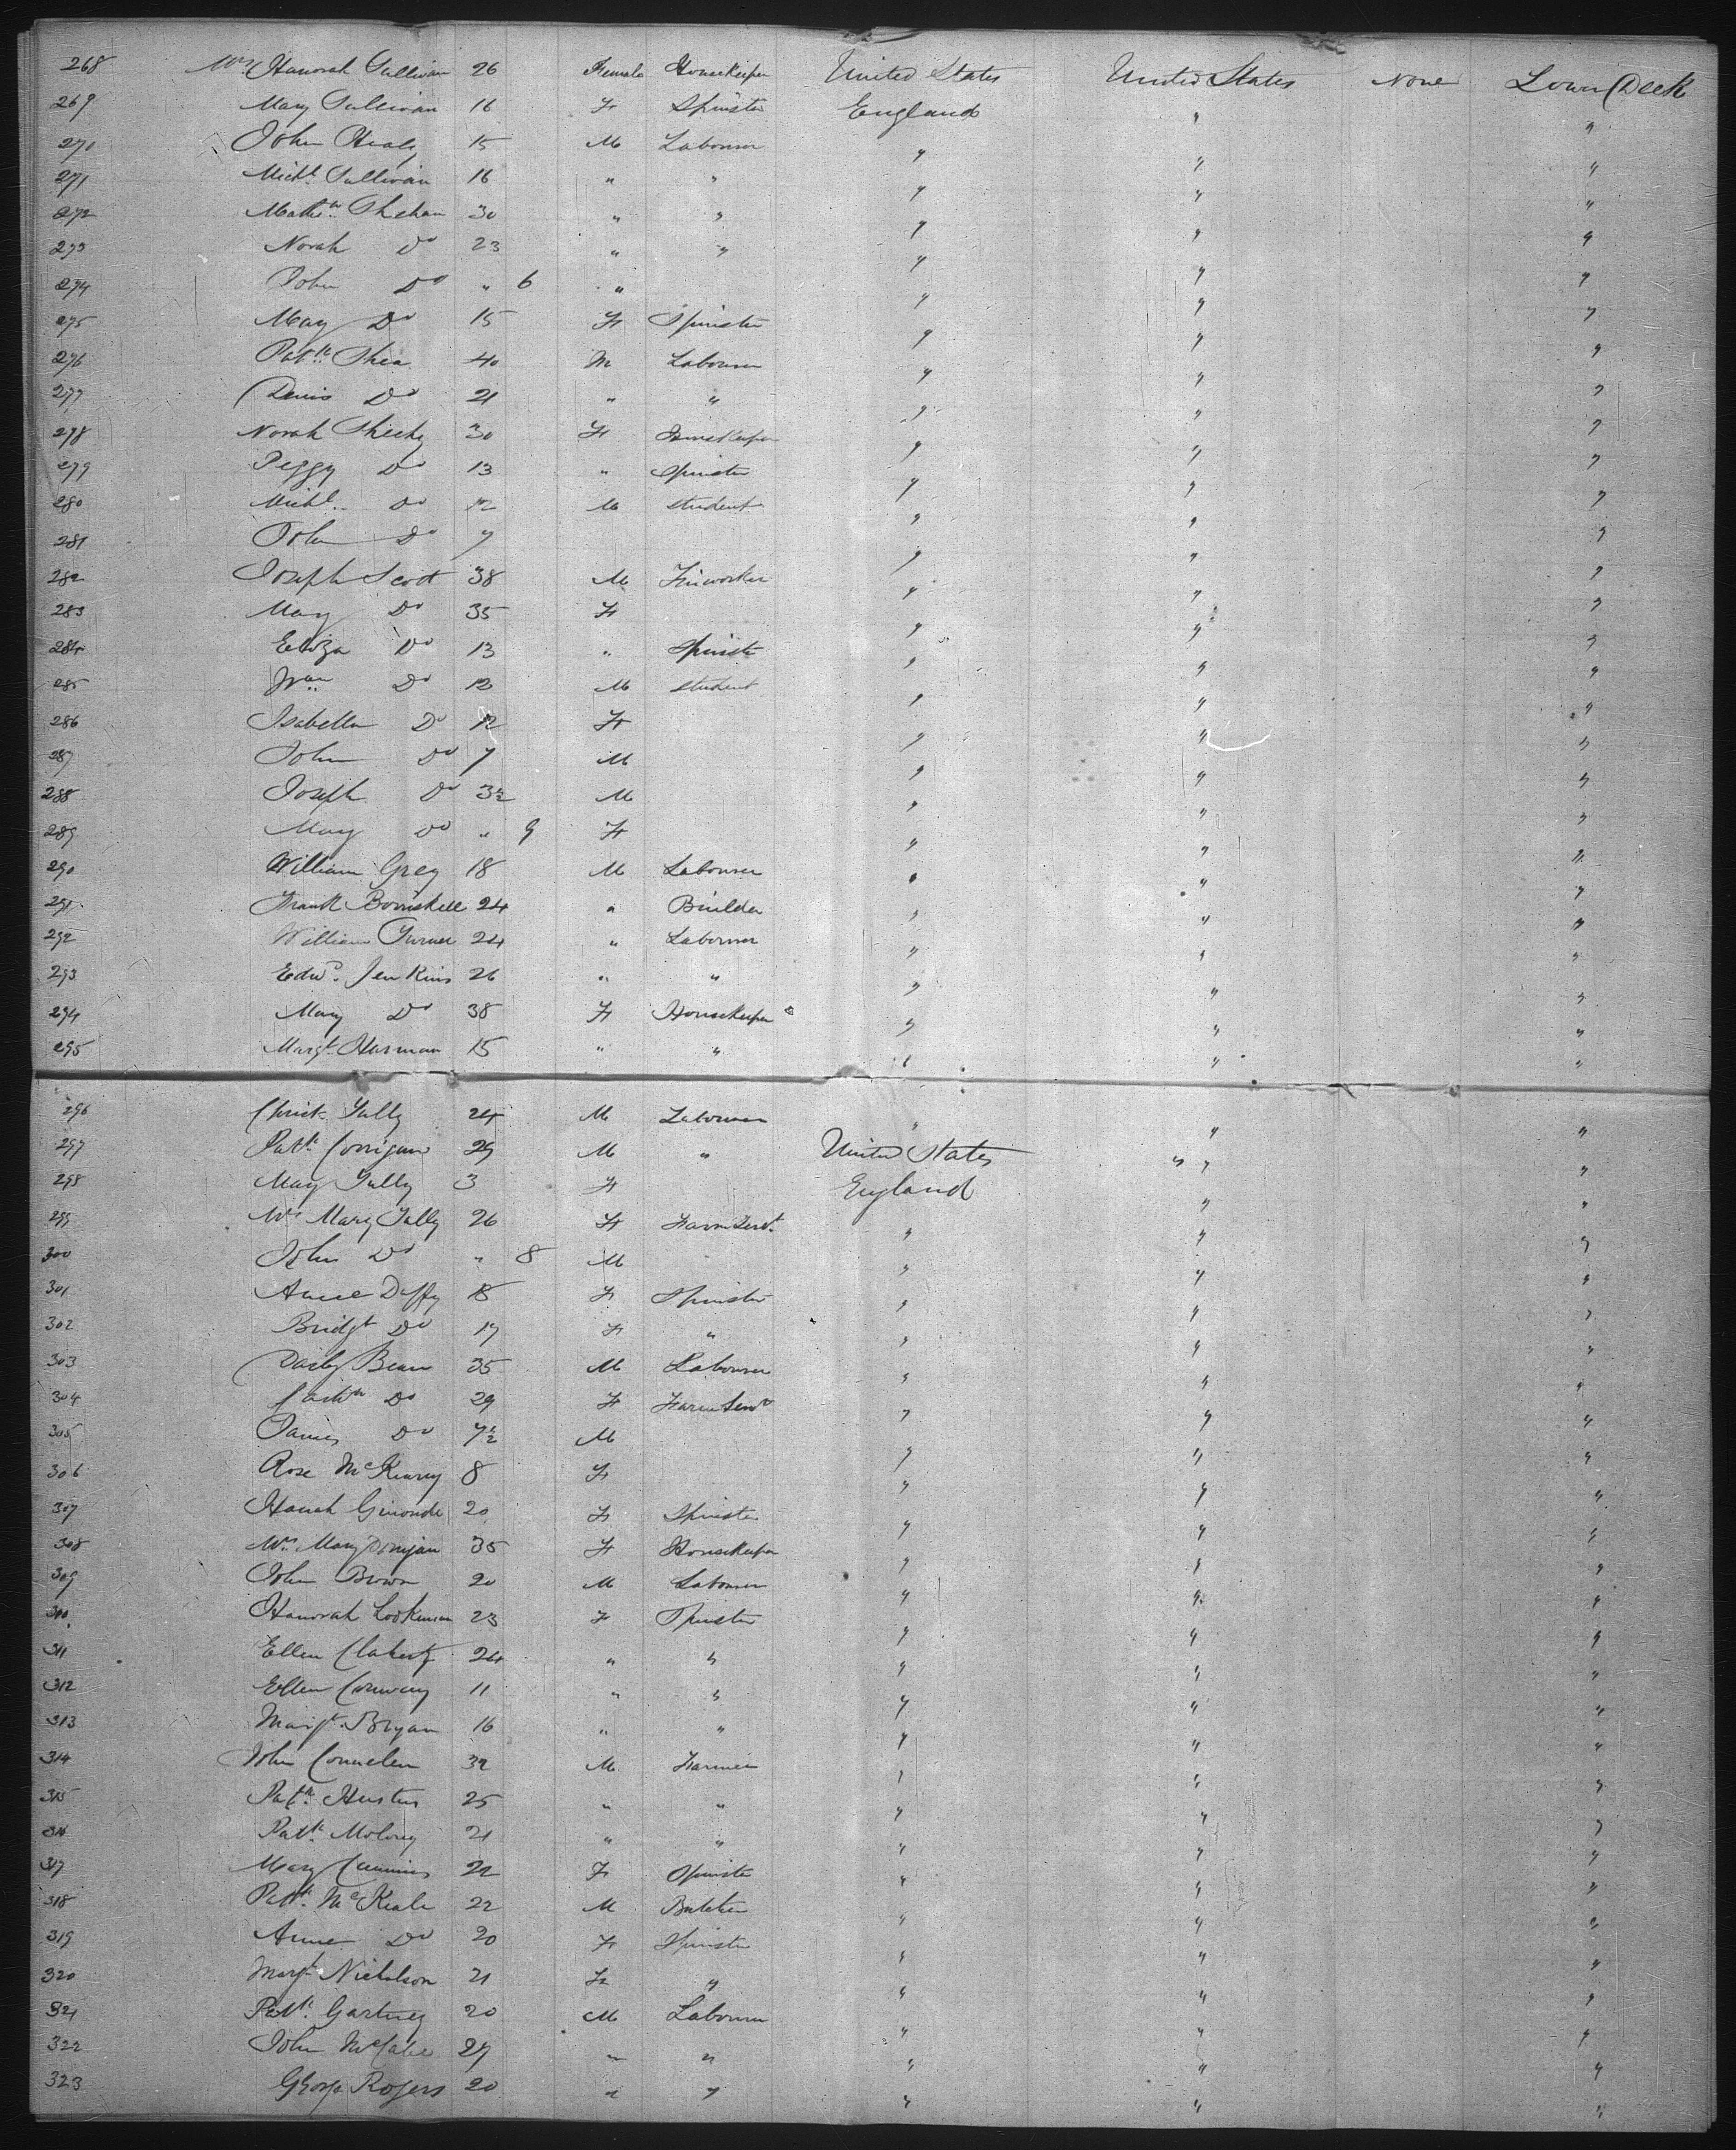 268 Mrs Hanorah Sullivan 26 Female Housekeeper United States United States None Lower Deck
269 Mary Sullivan 16 F Spinster England " "
270 John Healy 15 M Labourer " " "
271 Michl. Sullivan 16 " " " " "
272 Mathw. Shehan 30 " " " " "
273 Norah Do 23 " " " " "
274 John Do " 6 " " " "
275 Mary Do 15 F Spinster " " "
276 Patk. Shea 40 M Labourer " " "
277 Denis Do 21 " " " " "
278 Norah Sheehy 30 F Housekeeper " " "
279 Peggy Do 13 " Spinster " " "
280 Michl. Do 12 M Student " " "
281 John Do 7 " " "
282 Joseph Scott 38 M " " "
283 Mary Do 35 F " " "
284 Eliza Do 13 " Spinster " " "
285 Wm. Do 12 M Student " " "
286 Isabella Do 12 F " " "
287 John Do 7 M " " "
288 Joseph Do 3½ M " " "
289 Mary Do " 9 F " " "
290 William Grey 18 M Labourer " " "
291 Frank 24 " Builder " " "
292 William Turner 24 " Labourer " " "
293 Edwd. Jenkins 26 " " " " "
294 Mary Do 38 F Housekeeper " " "
295 Margt. Harman 15 " " " " "
296 Christ. Tully 24 M Labourer " " "
297 Patk. Corrigan 29 M " United States " " "
298 Mary Tully 3 F England " "
299 Mrs Mary Tully 26 F Farm Servt. " " "
300 John Do " 8 M " " "
301 Anne Duffy 18 F Spinster " " "
302 Bridgt Do 17 F " " " "
303 Darby Bean 35 M Labourer " " "
304 Cathn Do 29 F Farm Servt " " "
305 James Do 7½ M " " "
306 Rose McKearny 8 F " " "
307 Hanah 20 F Spinster " " "
308 Mrs. Mary Donigan 35 F Housekeeper " " "
309 John Brown 20 M Labourer " " "
310 Hanorah 23 F Spinster " " "
311 Ellen Claherty 24 " " " " "
312 Ellen Conway 11 " " " " "
313 Margt. Bryan 16 " " " " "
314 John 32 M Farmer " " "
315 Patk. 25 " " " " "
316 Patk. Molony 21 " " " " "
317 Mary Cummins 22 F Spinster " " "
318 Patk. McKeale 22 M Butcher " " "
319 Anne Do 20 F Spinster " " "
320 Margt Nicholson 21 F " " " "
321 Patk. Gartney 20 M Labourer " " "
322 John McCabe 27 " " " " "
323 George Rogers 20 " " " " "